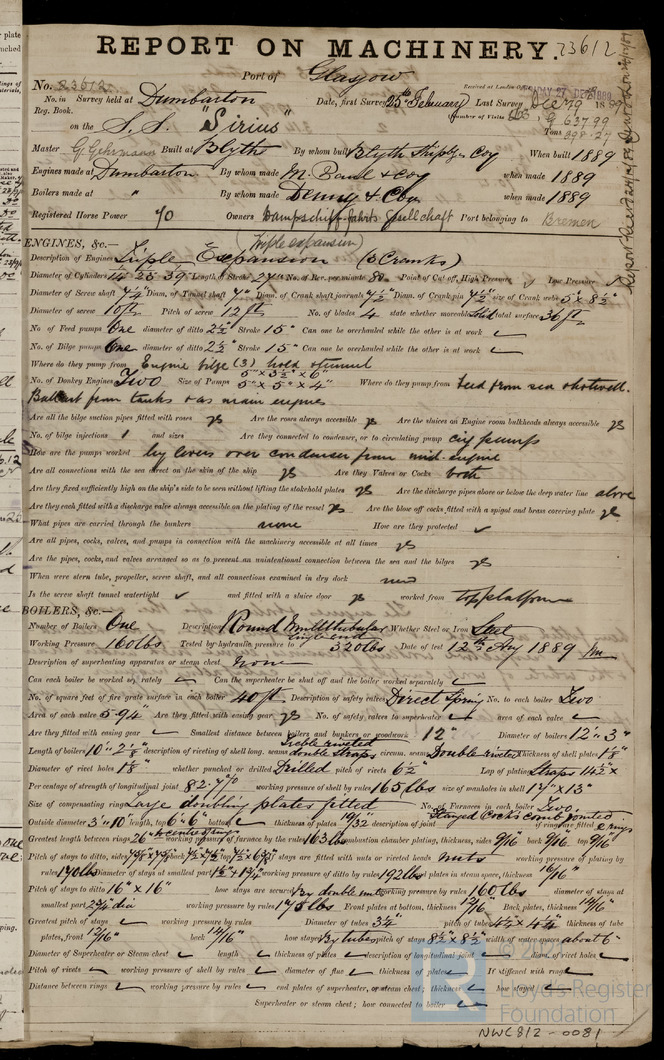 REPORT ON MACHINERY. 23612
Port of Glasgow
No. 23612
Received at London Office FRIDAY 27 DEC 1889
No. in Survey held at Dumbarton Date, first Survey 25th February Last Survey Dec 19 1889
Reg. Book.
(Number of Visits
on the S.S. "Sirius" Tons 637.99
398.27
Master G. Gehrmann Built at Blyth By whom built Blyth Shipbg Coy When built 1889
Engines made at Dumbarton By whom made M. Paul & Coy when made 1889
Boilers made at " By whom made Denny & Coy when made 1889
Registered Horse Power 70 Owners Dampschifffahrts Gesellschaft Port belonging to Bremen
ENGINES, &c.—
(Triple expansion)
Description of Engines Triple Expansion (3 Cranks)
Diameter of Cylinders 14" 23" 39" Length of Stroke 27" No. of Rev. per minute 80 Point of Cut off, High Pressure Low Pressure
Diameter of Screw shaft 7¼" Diam. of Tunnel shaft 7" Diam. of Crank shaft journals 7½" Diam. of Crank pin 7½" size of Crank webs 5" x 8½"
Diameter of screw 10ft Pitch of screw 12ft No. of blades 4 state whether moveable Solid total surface 36 ft
No. of Feed pumps One diameter of ditto 2½" Stroke 15" Can one be overhauled while the other is at work
No. of Bilge pumps One diameter of ditto 2½" Stroke 15" Can one be overhauled while the other is at work
Where do they pump from Engine bilge (3) hold & tunnel
No. of Donkey Engines Two Size of Pumps 5" x 3½" x 6" 5" x 5" x 4" Where do they pump from Feed from sea & hotwell.
Ballast from tanks & as main engines
Are all the bilge suction pipes fitted with roses yes Are the roses always accessible yes Are the sluices on Engine room bulkheads always accessible yes
No. of bilge injections 1 and sizes Are they connected to condenser, or to circulating pump cir pump
How are the pumps worked by levers over condenser from mid-engine
Are all connections with the sea direct on the skin of the ship yes Are they Valves or Cocks both
Are they fixed sufficiently high on the ship's side to be seen without lifting the stokehold plates yes Are the discharge pipes above or below the deep water line above
Are they each fitted with a discharge valve always accessible on the plating of the vessel yes Are the blow off cocks fitted with a spigot and brass covering plate yes
What pipes are carried through the bunkers none How are they protected
Are all pipes, cocks, valves, and pumps in connection with the machinery accessible at all times yes
Are the pipes, cocks, and valves arranged so as to prevent an unintentional connection between the sea and the bilges yes
When were stern tube, propeller, screw shaft, and all connections examined in dry dock new
Is the screw shaft tunnel watertight and fitted with a sluice door yes worked from top platform
BOILERS, &c.—
Number of Boilers One Description Round Multitubular Single end Whether Steel or Iron Steel
Working Pressure 160 lbs Tested by hydraulic pressure to 320 lbs Date of test 12th Aug 1889
Description of superheating apparatus or steam chest none
Can each boiler be worked separately Can the superheater be shut off and the boiler worked separately
No. of square feet of fire grate surface in each boiler 40 ft Description of safety valves Direct Spring No. to each boiler Two
Area of each valve 5.94" Are they fitted with easing gear yes No. of safety valves to superheater area of each valve
Are they fitted with easing gear Smallest distance between boilers and bunkers or woodwork 12" Diameter of boilers 12" 3"
Length of boilers 10" 2⅞" description of riveting of shell long. seams Treble riveted double Straps circum. seams Double riveted Thickness of shell plates 1⅛"
Diameter of rivet holes 1⅛" whether punched or drilled Drilled pitch of rivets 6½" Lap of plating Straps 14½"
Per centage of strength of longitudinal joint 82.7% working pressure of shell by rules 165 lbs size of manholes in shell 17" x 13"
Size of compensating rings Large doubling plates fitted No. of Furnaces in each boiler Two
Outside diameter 3" 10" length, top 6" 6" bottom thickness of plates 19/32 description of joint Stayed Cocks comb. jointed if rings are fitted 2 rings
Greatest length between rings 26" working pressure of furnace by the rules 163 lbs combustion chamber plating, thickness, sides 9/16" back 9/16" top 9/16"
Pitch of stays to ditto, sides 7½ x 7½ back 7½ x 7½ top stays are fitted with nuts or riveted heads nuts working pressure of plating by
rules 170 lbs Diameter of stays at smallest part working pressure of ditto by rules 192 lbs plates in steam space, thickness 15/16"
Pitch of stays to ditto 16" x 16" how stays are secured By double nuts working pressure by rules 160 lbs diameter of stays at
smallest part 2¼ dia working pressure by rules 175 lbs Front plates at bottom, thickness 12/16" Back plates, thickness 14/16"
Greatest pitch of stays working pressure by rules Diameter of tubes 3¼" pitch of tubes 4½ x 4¼" thickness of tube
plates, front 12/16" back 14/16" how stayed By tubes pitch of stays 8½" x 8½" width of water spaces about 6"
Diameter of Superheater or Steam chest length thickness of plates description of longitudinal joint diam. of rivet holes
Pitch of rivets working pressure of shell by rules diameter of flue thickness of plates If stiffened with rings
Distance between rings working pressure by rules end plates of superheater, or steam chest; thickness how stayed
Superheater or steam chest; how connected to boiler
Lloyd's Register
Foundation
NWC812-0081